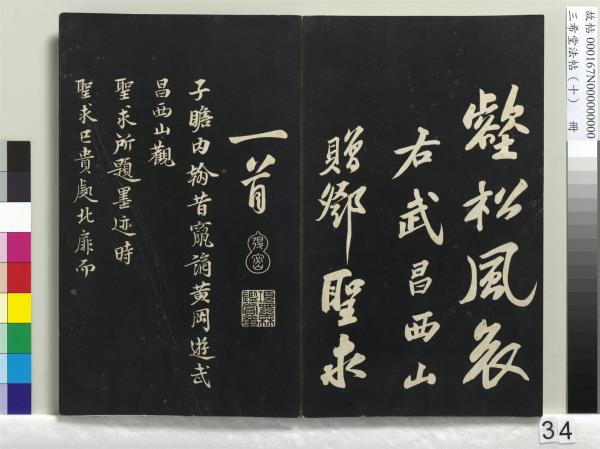 壑松風哀
右武昌西山
贈鄧聖求
一首
子瞻內翰昔竄謫黃岡遊武
昌西山觀
聖求所題墨迹時
聖求已貴處北扉而
故帖 000167N000000000
三希堂法帖(十) 冊
34